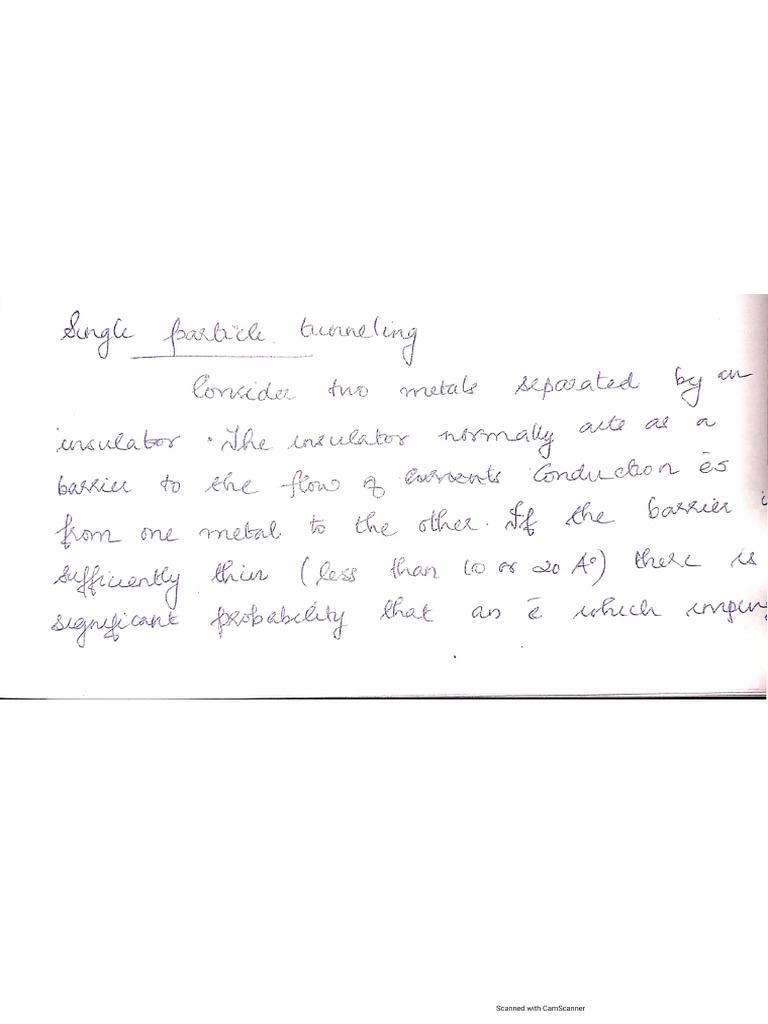 Single particle tunneling
Consider two metals separated by an
insulator. The insulator normally acts as a
barrier to the flow of currents conduction ēs
from one metal to the other. If the barrier i
sufficiently thin (less than 10 or 20 A°) there is
significant probability that an ē which imping
Scanned with CamScanner